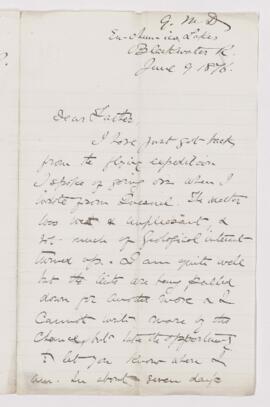 G. M. D
Eu-chun-i-co Lakes
Blackwater R.
June 9 1876.
Dear Father
I have just got back
from the flying expedition
I spoke of going on when I
wrote from Quesnel. The weather
was wet & unpleasant, &
not much of Geological interest
turned up. I am quite well
but the tents are being pulled
down for another move & I
Cannot write more of the
Chance, but take the opportunity
to let you know where I
am. In about seven days